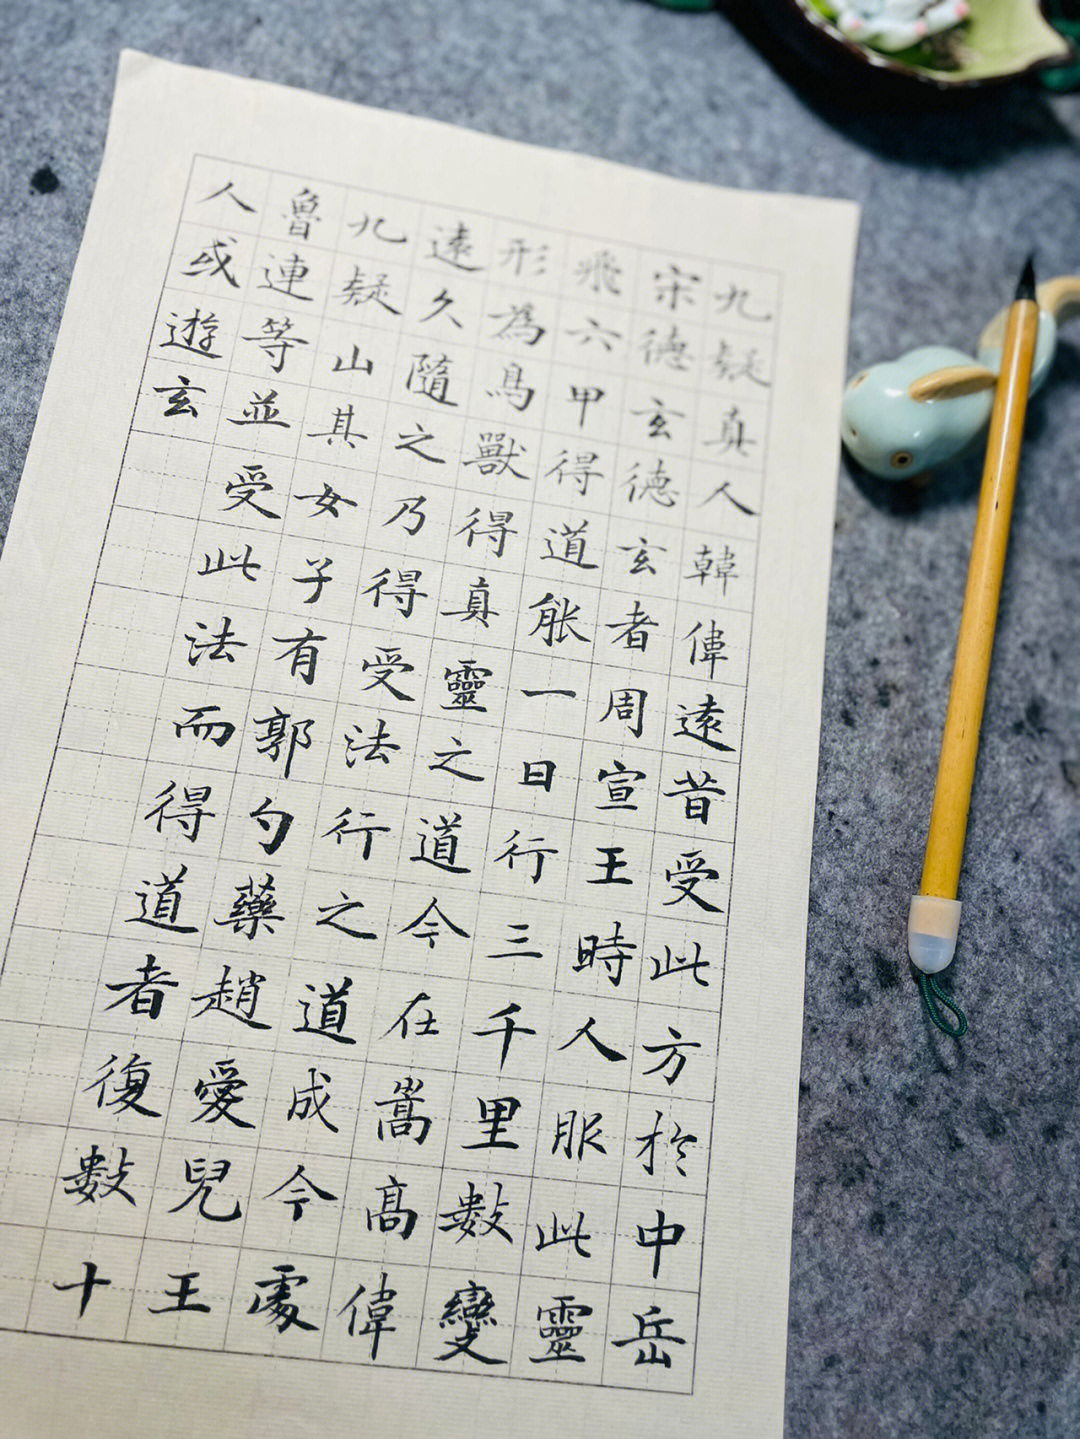 九疑真人韓偉遠昔受此方於中岳
宋德玄德玄者周宣王時人服此靈
飛六甲得道能一日行三千里數變
形為鳥獸得真靈之道今在嵩高偉
遠久隨之乃得受法行之道成今處
九疑山其女子有郭勺藥趙愛兒王
魯連等並受此法而得道者復數十
人或遊玄